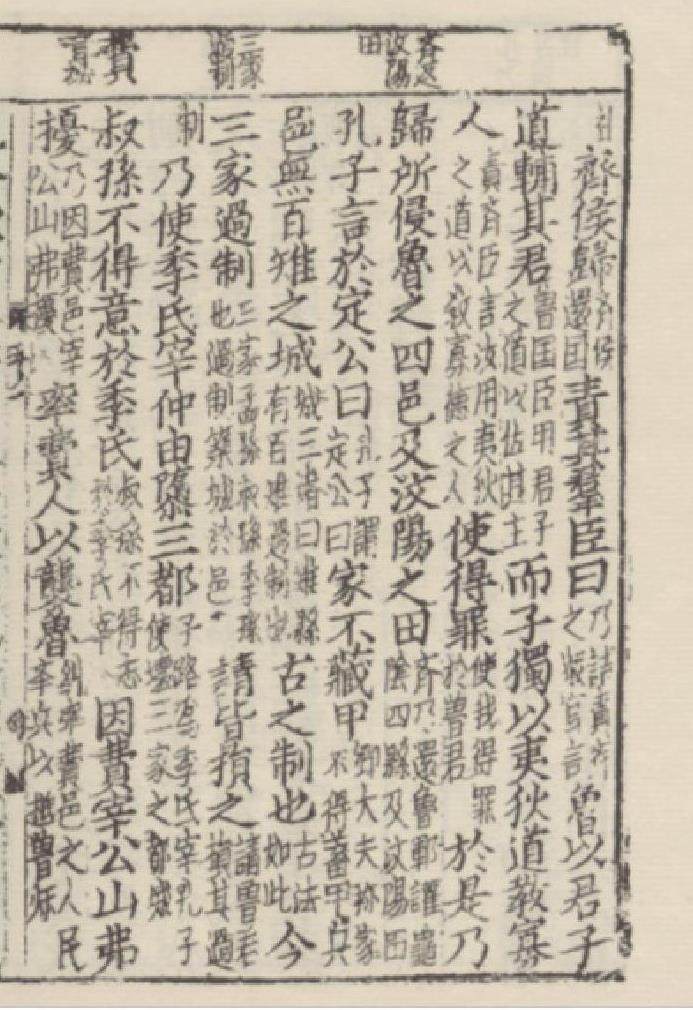 齐还汶陽田
三家過制
費
齊侯歸齐侯還国責其羣臣曰乃誚責齐之衆官言魯以君子
道輔其君魯国臣用君子之道以佐其主而子獨以夷狄道教寡
人責齐臣言汝用夷狄之道以教寡德之人使得罪使我得罪於魯君於是乃
歸所侵魯之四邑及汶陽之田齐乃還魯鄆讙龜陰四縣及汶陽西
孔子言於定公曰孔子謂定公曰家不藏甲卿大夫称家不得蓄甲兵
邑無百雉之城城三堵曰雉縣有百雉過制古之制也古法如此今
三家過制三家孟孫叔孫季孫也過制築城於邑請皆損之請魯君損其過
制乃使季氏宰仲由隳三都子路為季氏宰孔子使壞三家之都城
叔孫不得意於季氏叔孫不得志於季氏宰因費宰公山弗
擾乃因費邑宰公山弗擾率費人以襲魯糾率費邑之人民率兵以趍魯师